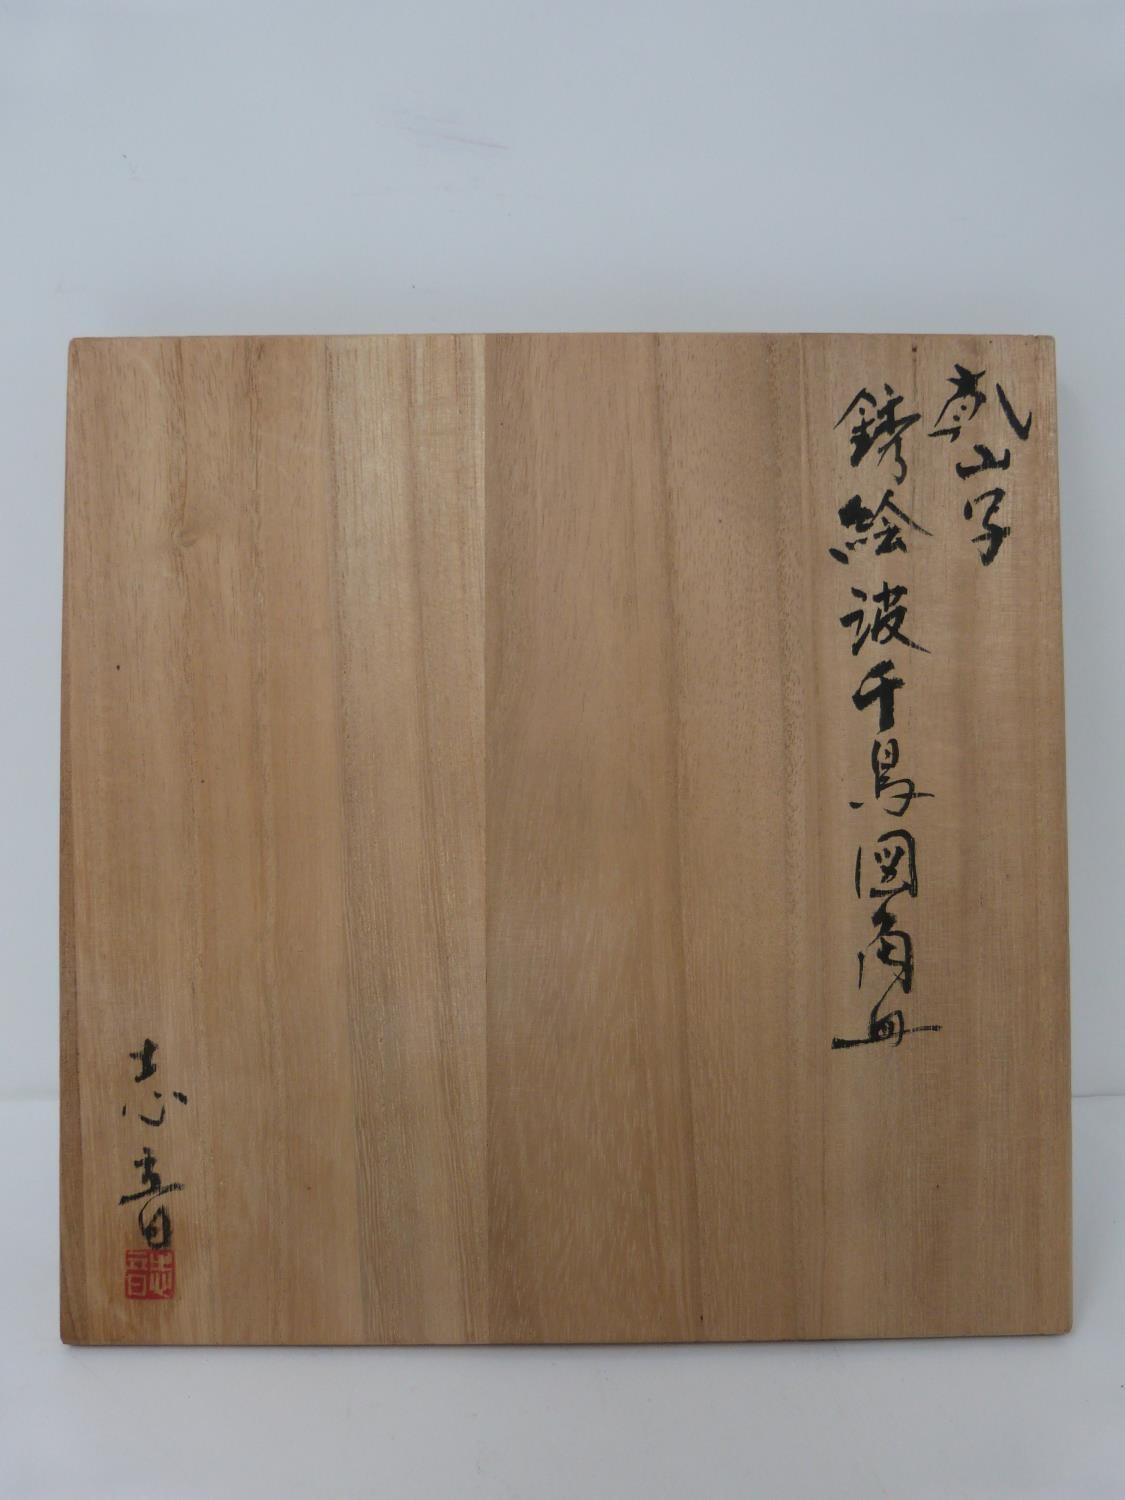 乾山写
銹絵波千鳥図角皿
志音
志音